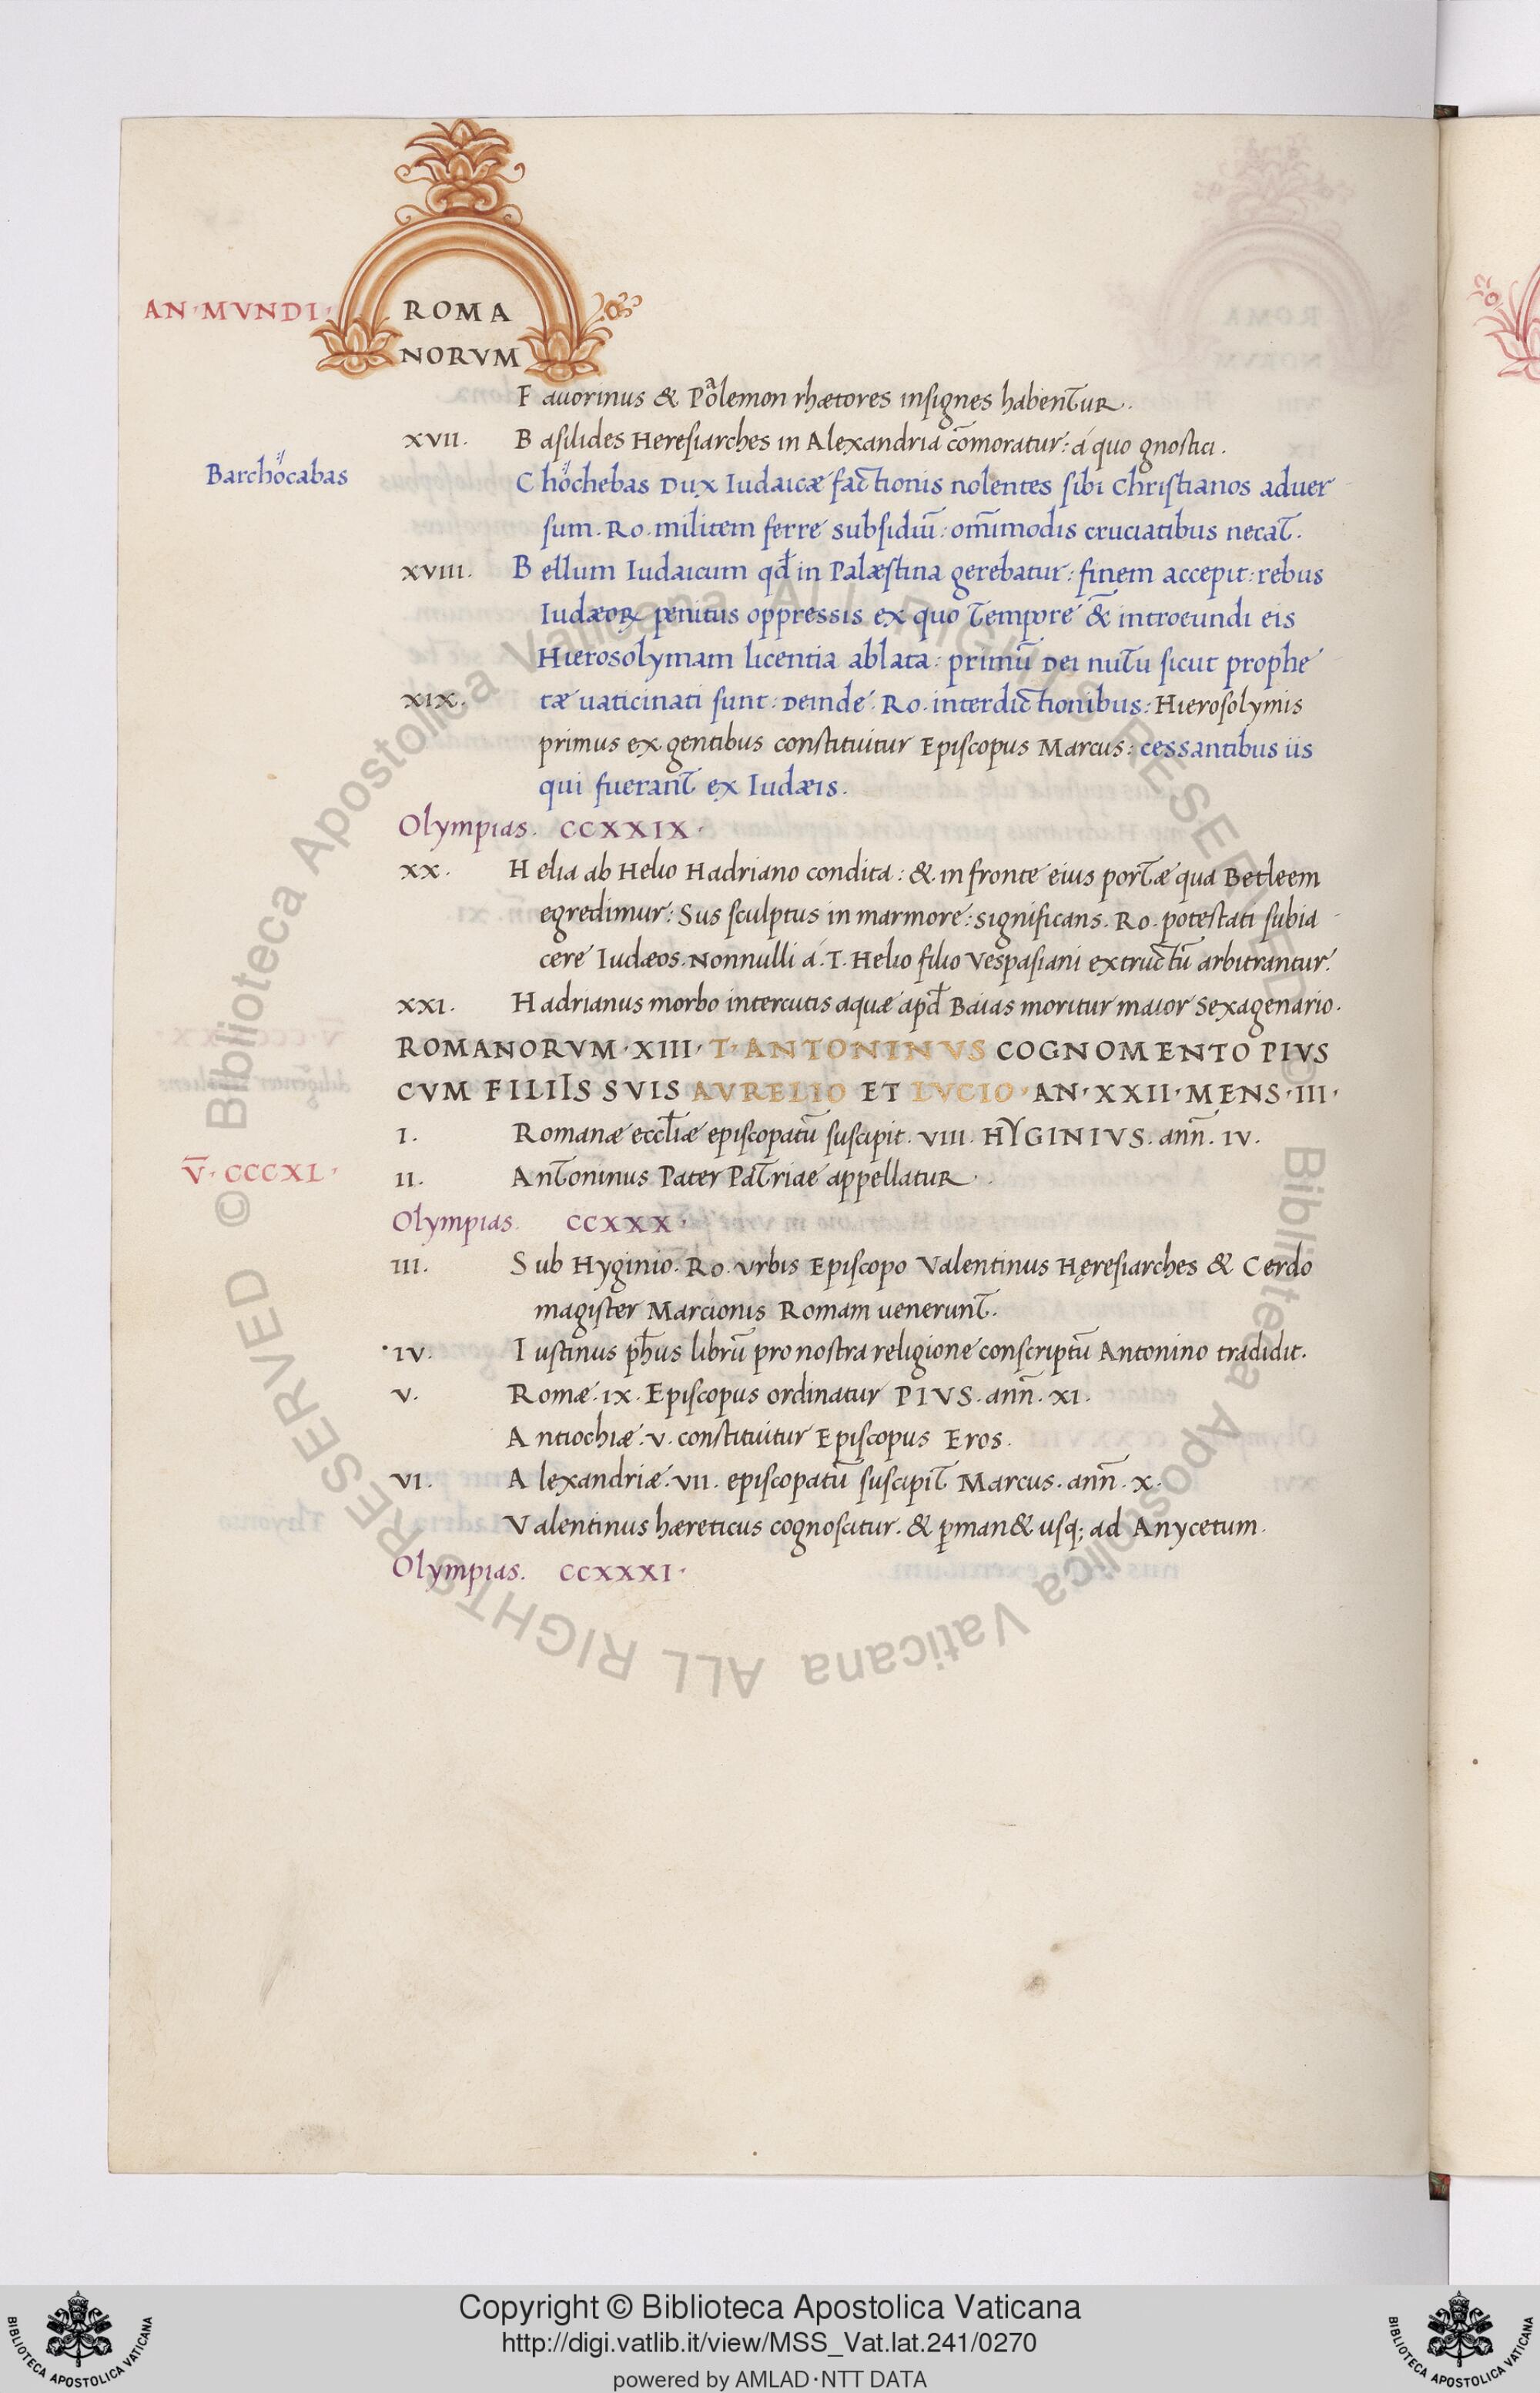 AN·MVNDI·
ROMA
NORVM
Fauorinus & Polemon rhætores insignes habentur.
XVII. Basilides Heresiarches in Alexandria cōmoratur: á quo gnostici.
Barchocabas
Chochebas Dux Iudaicæ factionis nolentes sibi Christianos aduer
sum. Ro. militem ferre subsidiū: om̄imodis cruciatibus necat.
XVIII. Bellum Iudaicum qđ in Palæstina gerebatur: finem accepit: rebus
Iudæoꝝ penitus oppressis ex quo tempore & introeundi eis
Hierosolymam licentia ablata: primū Dei nutu sicut prophe
XIX. tæ uaticinati sunt: Deinde. Ro. interdictionibus: Hierosolymis
primus ex gentibus constituitur Episcopus Marcus: cessantibus iis
qui fuerant ex Iudæis.
Olympias. CCXXIX·
XX. Helia ab Helio Hadriano condita: & in fronte eius portæ qua Betleem
egredimur: Sus sculptus in marmore: significans. Ro. potestati subia
cere Iudæos. Nonnulli á. T. Helio filio Vespasiani extructū arbitrantur.
XXI. Hadrianus morbo intercutis aquæ apđ Baias moritur maior sexagenario.
ROMANORVM·XIII·T·ANTONINVS COGNOMENTO PIVS
CVM FILIIS SVIS AVRELIO ET LVCIO·AN·XXII·MENS·III·
I. Romanæ eccłiæ episcopatū suscipit. VIII. HYGINIVS. anñ. IV.
V̄·CCCXL·
II. Antoninus Pater Patriae appellatur.
Olympias. CCXXX·
III. Sub Hyginio. Ro. Vrbis Episcopo Valentinus Hęresiarches & Cerdo
magister Marcionis Romam uenerunt.
·IV. Iustinus pħus librū pro nostra religione conscriptū Antonino tradidit.
V. Romæ. IX. Episcopus ordinatur PIVS. anñ. XI.
Antiochiæ. V. constituitur Episcopus Eros.
VI. Alexandriæ. VII. episcopatū suscipit Marcus. anñ. X.
Valentinus hæreticus cognoscitur. & ꝑman& usq; ad Anycetum.
Olympias. CCXXXI·
© Biblioteca Apostolica Vaticana ALL RIGHTS RESERVED © Biblioteca Apostolica Vaticana ALL RIGHTS RESERVED
Copyright © Biblioteca Apostolica Vaticana
http://digi.vatlib.it/view/MSS_Vat.lat.241/0270
powered by AMLAD·NTT DATA
BIBLIOTECA APOSTOLICA VATICANA
BIBLIOTECA APOSTOLICA VATICANA